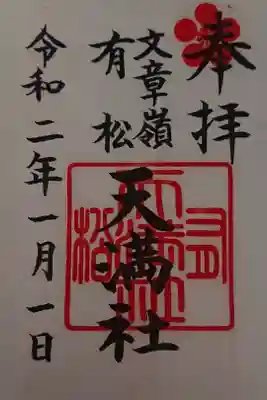 奉拝
文章嶺
有松
天満社
令和二年一月一日